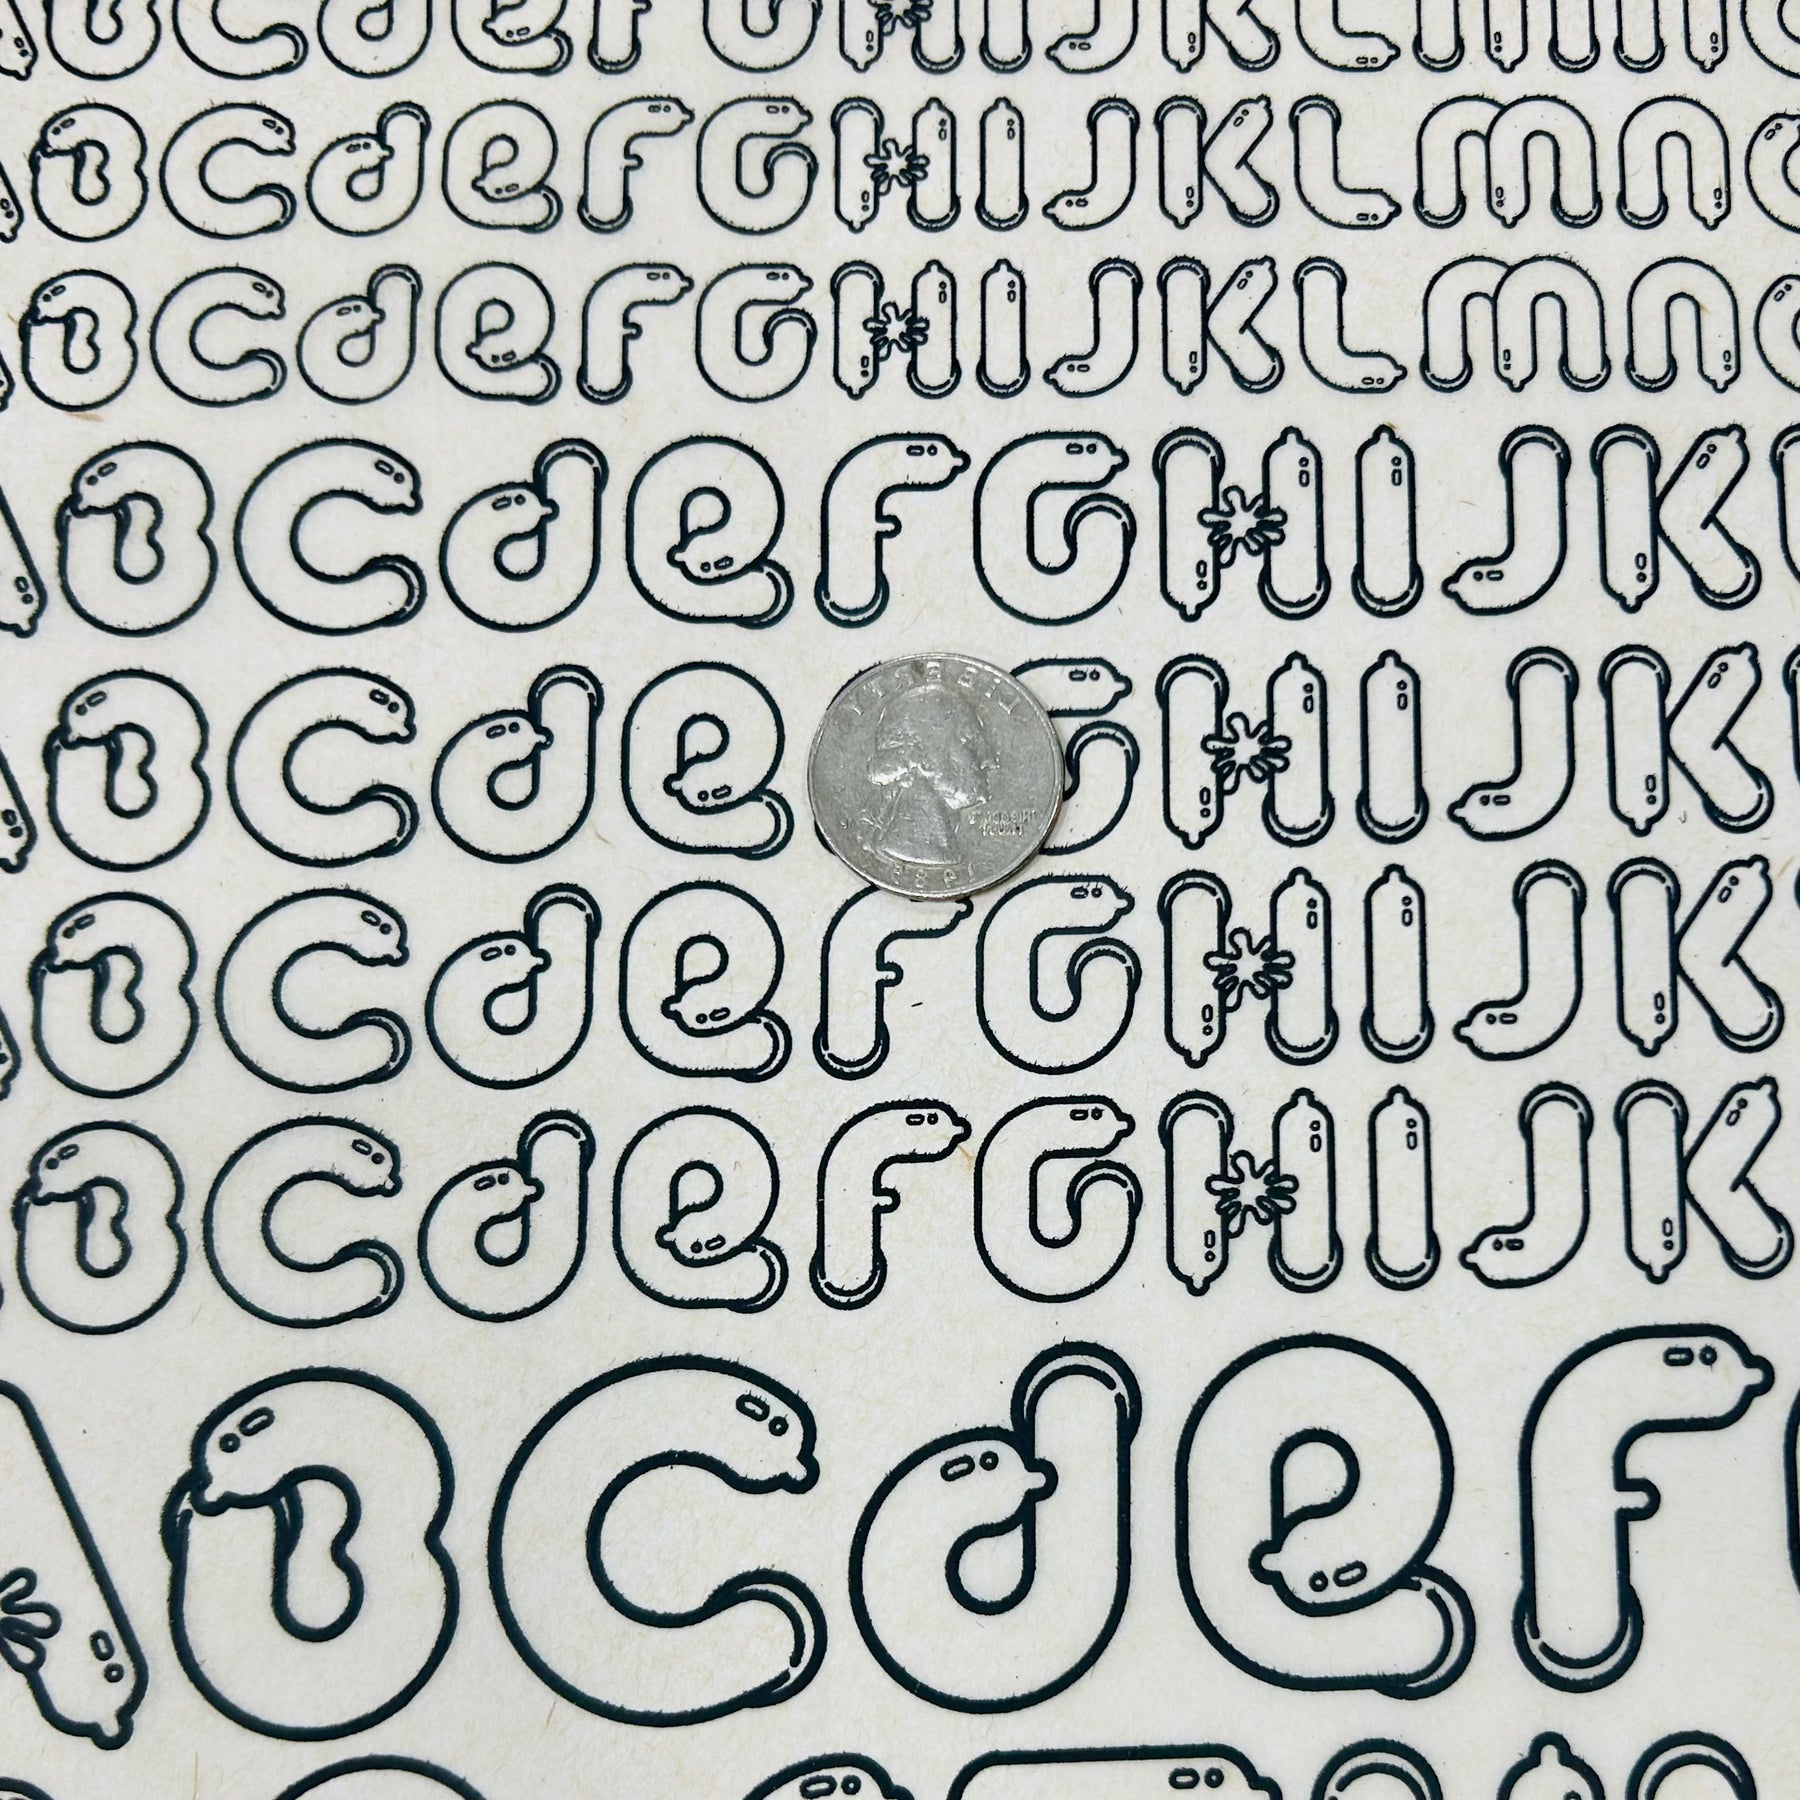 B C d e F G H I J K L m n
B C d e F G H I J K L m n
B C d e F G H I J K L m n
B C d e F G H I J K
B C d e G H I J K
LIBERTY
IN GOD WE TRUST
B C d e F G H I J K
B C d e F G H I J K
A B C d e F